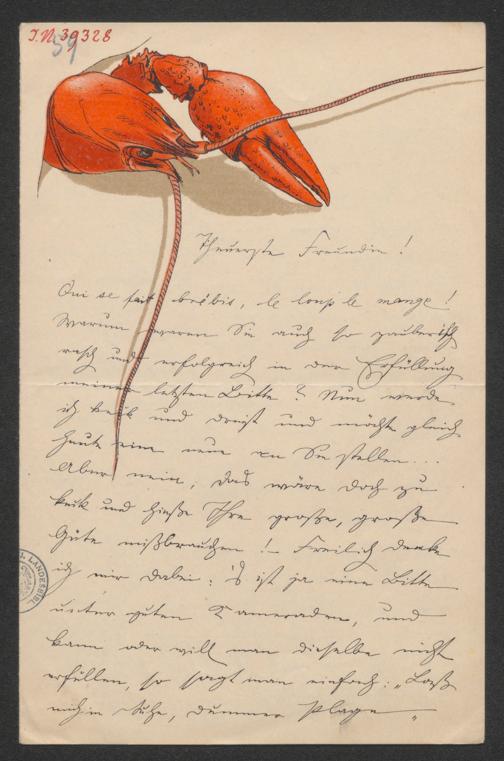 I.N. 39328
59
Theuerste Freundin!
Qui se fait brébis, le loup le mange!
Warum waren Sie auch so zauberisch
rasch und erfolgreich in der Erfüllung
meiner letzten Bitte? Nun werde
ich keck und dreist und möchte gleich
heute eine neue an Sie stellen...
Aber nein, das wäre doch zu
keck und hieße Ihre große, große
Güte mißbrauchen! – Freilich denke
ich mir dabei: 's ist ja eine Bitte
unter guten Kameraden, und
kann oder will man dieselbe nicht
erfüllen, so sagt man einfach: „Laß
mich in Ruhe, dummer Plage"
LANDESBIBL